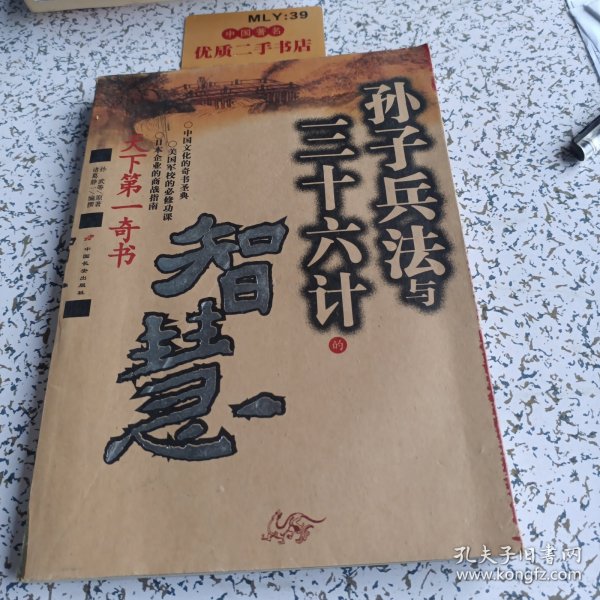 MLY:39
中国著名
优质二手书店
孙子兵法与
三十六计
的
智慧
○中国文化的奇书圣典
○美国军校的必修功课
○日本企业的商战指南
天下第一奇书
孙 武等/原著
诸葛静一/编撰
中国长安出版社
孔夫子旧书网
www.kongfz.com